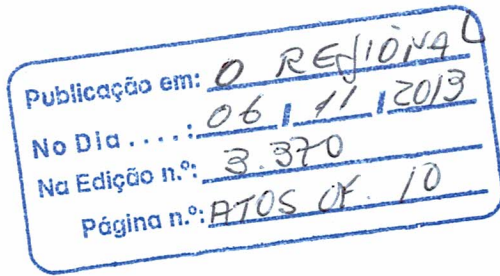 Publicação em: O REGIONAL
No Dia . . . . : 06 / 11 / 2013
Na Edição n.º: 3.370
Página n.º: ATOS OF. 10